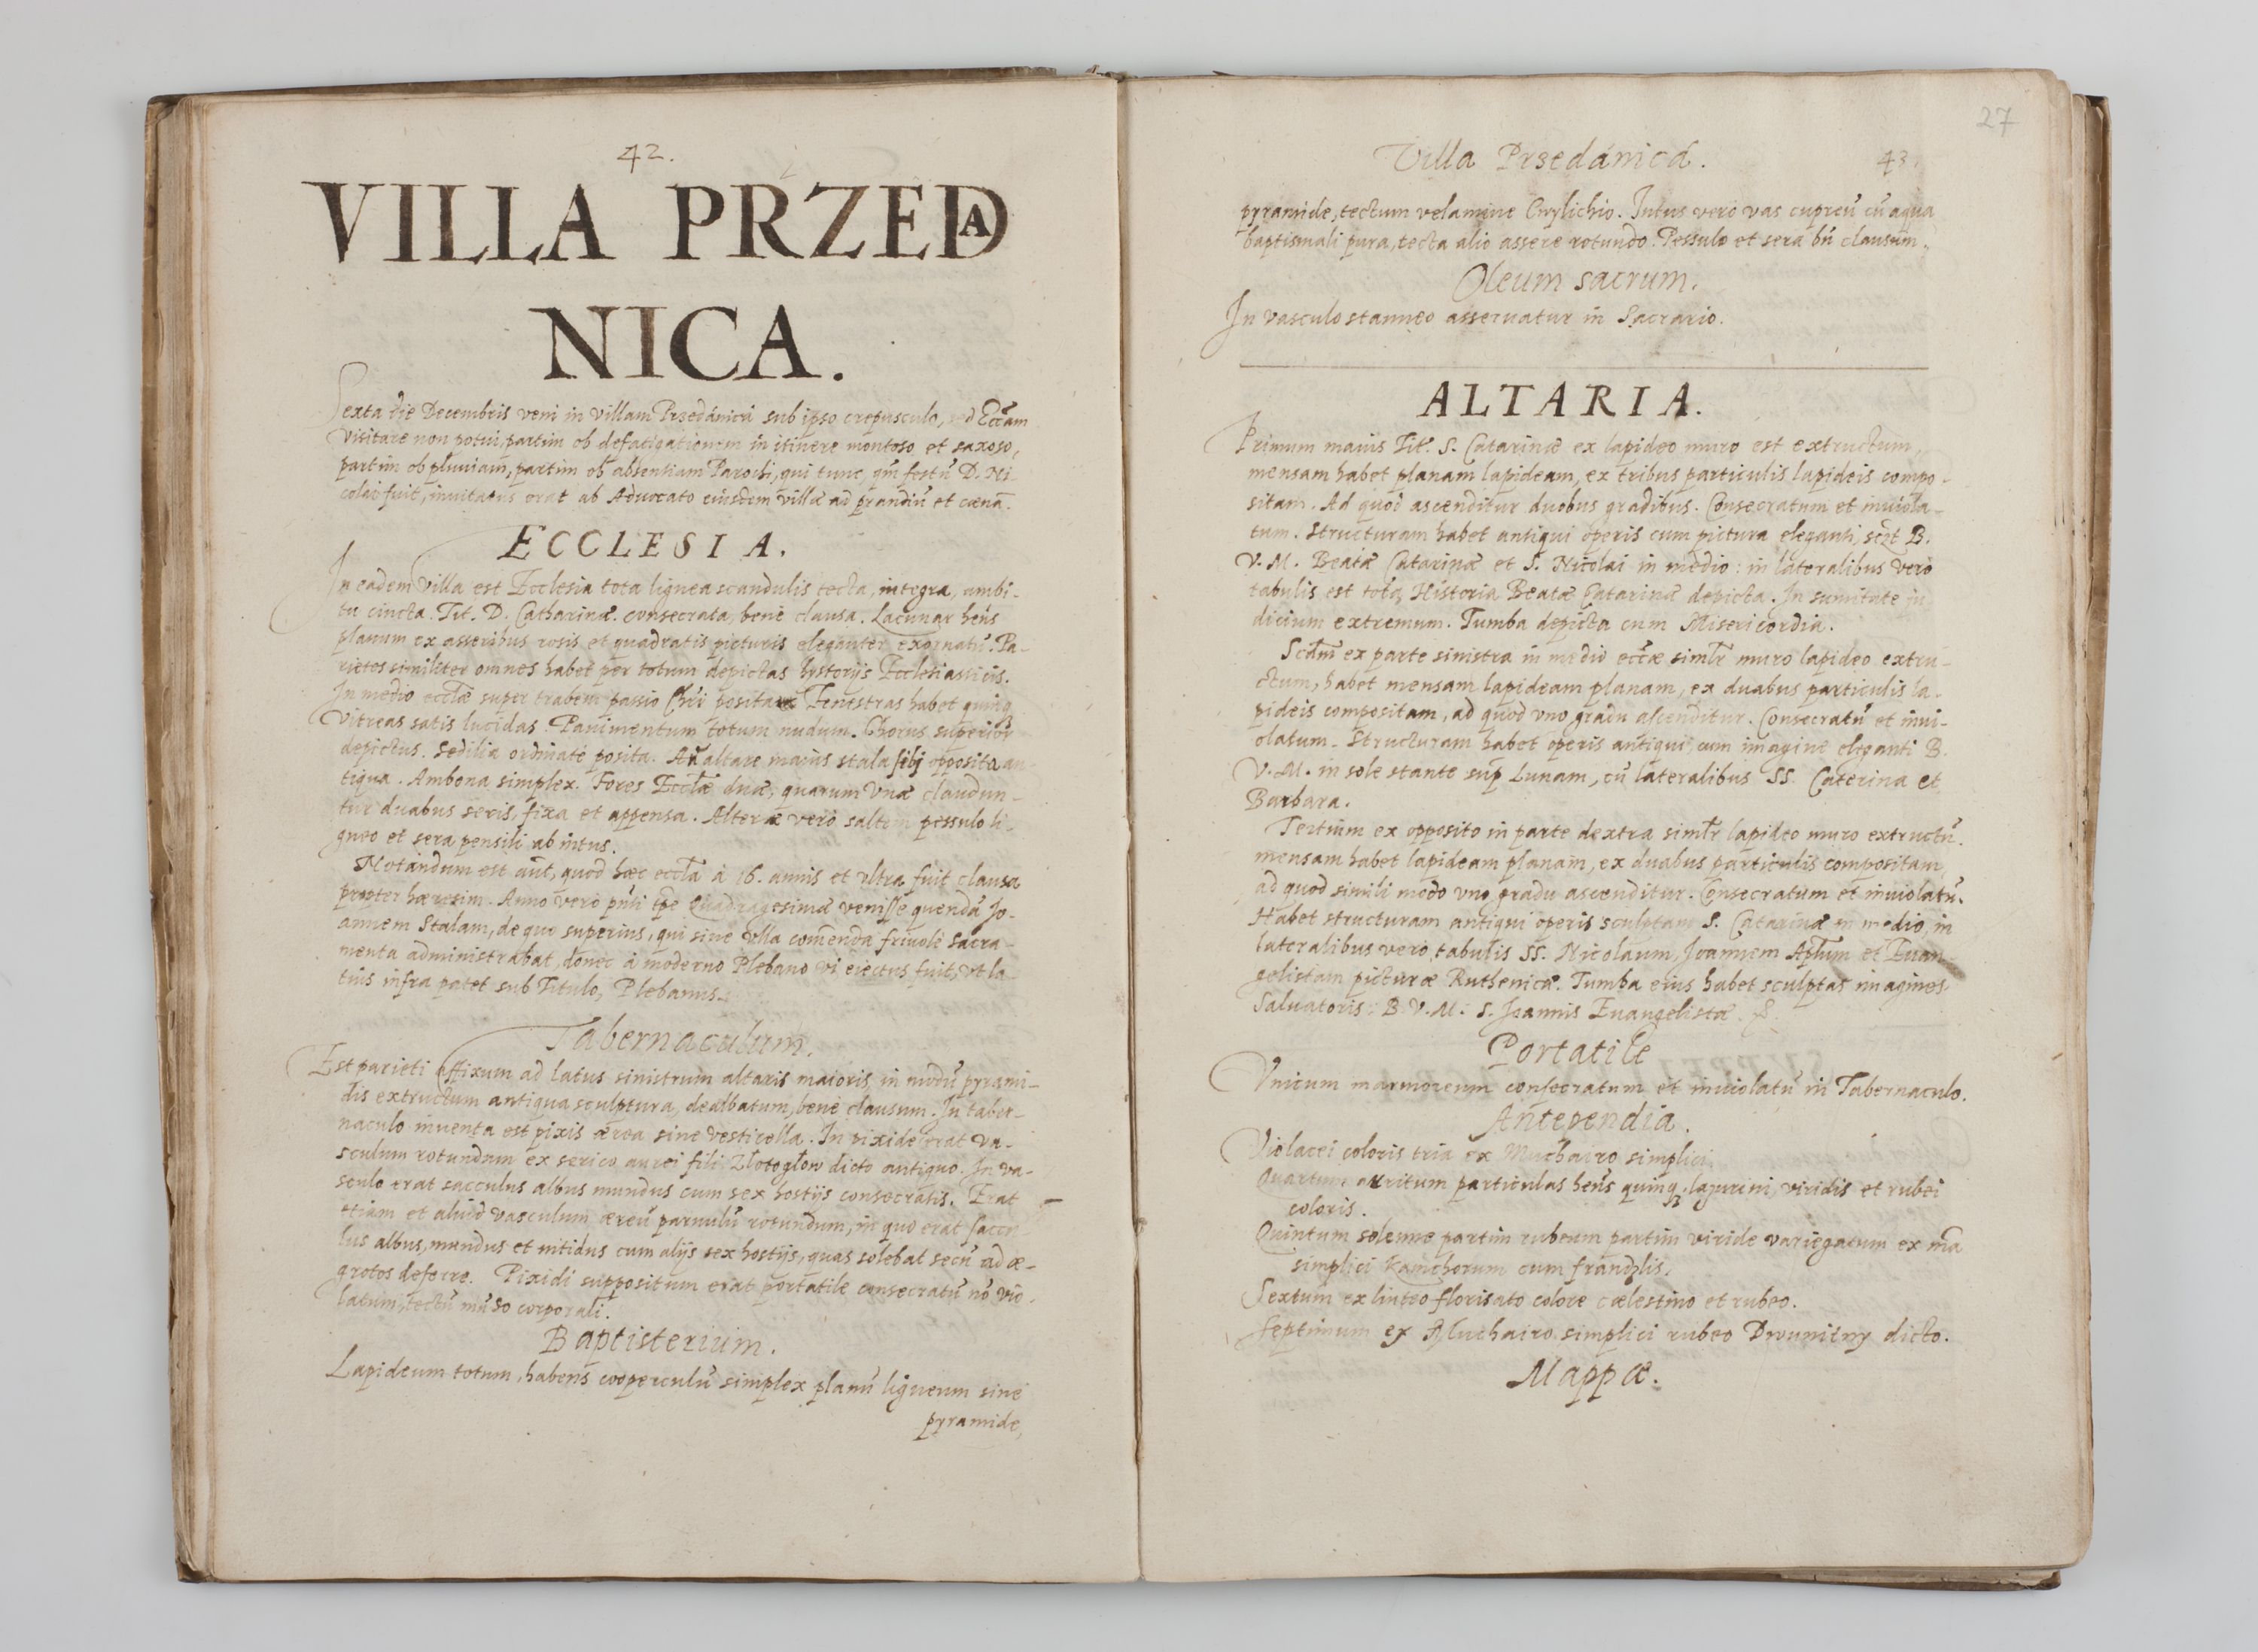 42.
VILLA PRZEDA
NICA.
Sexta die Decembris veni in villam Przedánicá sub ipso crepusculo, sed Eccłam
visitare non potui, partim ob defatigationem in itinere montoso et saxoso,
partim ob pluuiam, partim ob absentiam Parochi, qui tunc, qm̃ festũ D. Ni-
colai fuit, inuitatus erat ab Aduocato eiusdem villæ ad prandiũ et cænã.
ECCLESIA.
In eadem villa est Ecclesia tota lignea scandulis tecta, integra, ambi-
tu cincta. Tit. D. Catharinæ. consecrata, benè clausa. Lacunar hñs
planum ex asseribus rosis et quadratis picturis eleganter exornatũ. Pa-
rietes similiter omnes habet per totum depictas hystorijs Ecclesiasticis.
In medio eccłæ super trabem passio Chri posita Fenestras habet quinq
vitreas satis lucidas. Pauimentum totum nudum. Chorus superior
depictus. Sedilia ordinatè posita. An̄ altare maius stala sibi opposita an-
tiqua. Ambona simplex. Fores Eccłæ duæ, quarum Vnæ claudun-
tur duabus seris, fixa et appensa. Alteræ verò saltem pessulo li-
gneo et sera pensili ab intus.
Notandum est aũt, quod hæc eccła à 16. annis et vltra fuit clausa
propter hæresim. Anno verò pñti tpe Quadragesimæ venisse quendã Jo-
annem Stalam, de quo superius, qui sine vlla comenda friuolè Sacra-
menta administrabat, donec à moderno Plebano vi eiectus fuit, vt la-
tius infra patet sub Titulo, Plebanus.
Tabernaculum.
Est parieti affixum ad latus sinistrum altaris maioris in modũ pyrami-
dis extructum antiqua sculptura, dealbatum, benè clausum. In taber-
naculo inuenta est pixis ærea sine vesticella. In pixide erat va-
sculum rotundum ex serico aurei fili Złotogłow dicto antiquo. In va-
sculo erat sacculus albus mundus cum sex hostijs consecratis. Erat
etiam et aliud vasculum æreũ paruulũ rotundum, in quo erat saccu-
lus albus, mundus et nitidus cum alijs sex hostijs, quas solebat secũ ad æ-
grotos deferre. Pixidi suppositum erat portatile consecratũ nõ vio-
latum, tectũ mũdo corporali.
Baptisterium.
Lapideum totum, habens cooperculũ simplex planũ ligneum sine
pyramide,
27
Villa Przedánicá.
43.
pyramide, tectum velamine Cwylichio. Intus verò vas cupreũ cũ aqua
baptismali pura, tecta alio assere rotundo. Pessulo et sera bñ clausum.
Oleum sacrum.
In vasculo stanneo asseruatur in Sacrario.
ALTARIA.
Primum maius Tit. S. Catarinæ ex lapideo muro est extructum,
mensam habet planam lapideam, ex tribus particulis lapideis compo-
sitam. Ad quod ascenditur duobus gradibus. Consecratum et inuiola-
tum. Structuram habet antiqui operis cum pictura eleganti, sczt B.
V. M. Beatæ Catarinæ et S. Nicolai in medio: in lateralibus verò
tabulis est tota Historia Beatæ Catarinæ depicta. In sumitate ju
dicium extremum. Tumba depicta cum Misericordia.
Scdm̃ ex parte sinistra in medio eccłæ simłr muro lapideo extru-
ctum, habet mensam lapideam planam, ex duabus particulis la-
pideis compositam, ad quod vno gradu ascenditur. Consecratũ et inui-
olatum. Structuram habet operis antiqui, cum imagine eleganti B.
V. M. in sole stante sup Lunam, cũ lateralibus SS. Caterina et
Barbara.
Tertium ex opposito in parte dextra simłr lapideo muro extructũ.
mensam habet lapideam planam, ex duabus particulis compositam,
ad quod simili modo vno gradu ascenditur. Consecratum et inuiolatũ.
Habet structuram antiqui operis sculptam S. Catarinæ in medio, in
lateralibus verò tabulis SS. Nicolaum, Joannem Apłum et Euan-
gelistam picturæ Ruthenicæ. Tumba eius habet sculptas imagines
Saluatoris: B. V. M: S. Joannis Euangelistæ.
Portatile
Vnicum marmoreum consecratum et inuiolatũ in Tabernaculo.
Antependia.
Violacei coloris tria ex Muchairo simplici.
Quartum auritum particulas hñs quinq. lazurini, viridis et rubei
coloris.
Quintum solenne partim rubeum partim viride variegatum ex mã
simplici Kamchorum cum frandzlis.
Sextum ex linteo florisato colore cælestino et rubeo.
Septimum ex Muchairo simplici rubeo Dwunitny dicto.
Mappæ.